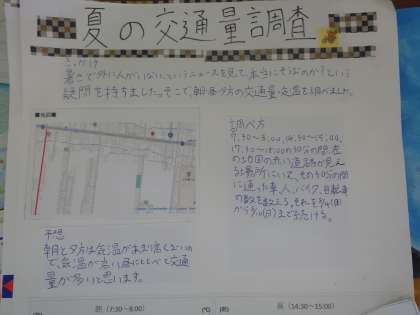 夏の交通量調査
きっかけ
暑さで外に人がいないというニュースを見て、本当にそうなのか？という
疑問を持ちました。そこで、朝・昼・夕方の交通量、気温を調べました。
■地図■
調べ方
7:30〜8:00、14:30〜15:00、
17:30〜18:00の30分の間、左
の地図の赤い道路が見え
る場所にいて、その30分の間
に通った車、人、バイク、自転車
の数を数える。それを
から
予想
朝と夕方は気温がまだ高くないの
で、気温が高い昼にくらべて交通
量が多いと思います。
朝（7:30〜8:00）
(℃)
昼（14:30〜15:00）